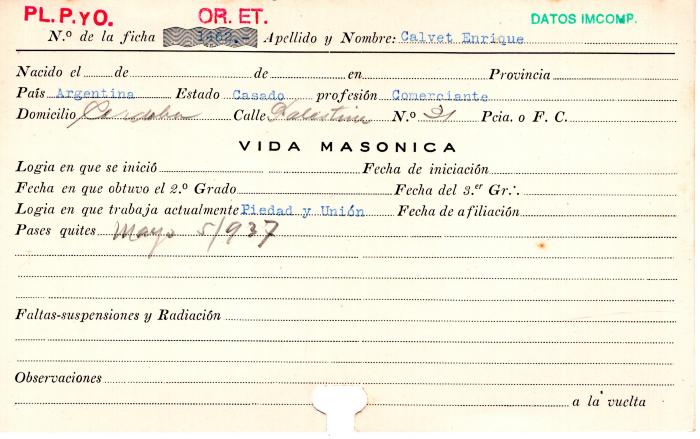 PL.P.YO. OR. ET. DATOS IMCOMP.
N.º de la ficha 1462.- Apellido y Nombre: Calvet Enrique
Nacido el de de en Provincia
País Argentina Estado Casado profesión Comerciante
Domicilio Cordoba Calle Palestina N.º 31 Pcia. o F. C.
VIDA MASONICA
Logia en que se inició Fecha de iniciación
Fecha en que obtuvo el 2.º Grado Fecha del 3.er Gr∴
Logia en que trabaja actualmente Piedad y Unión Fecha de afiliación
Pases quites Mayo 5/937
Faltas-suspensiones y Radiación
Observaciones
a la vuelta